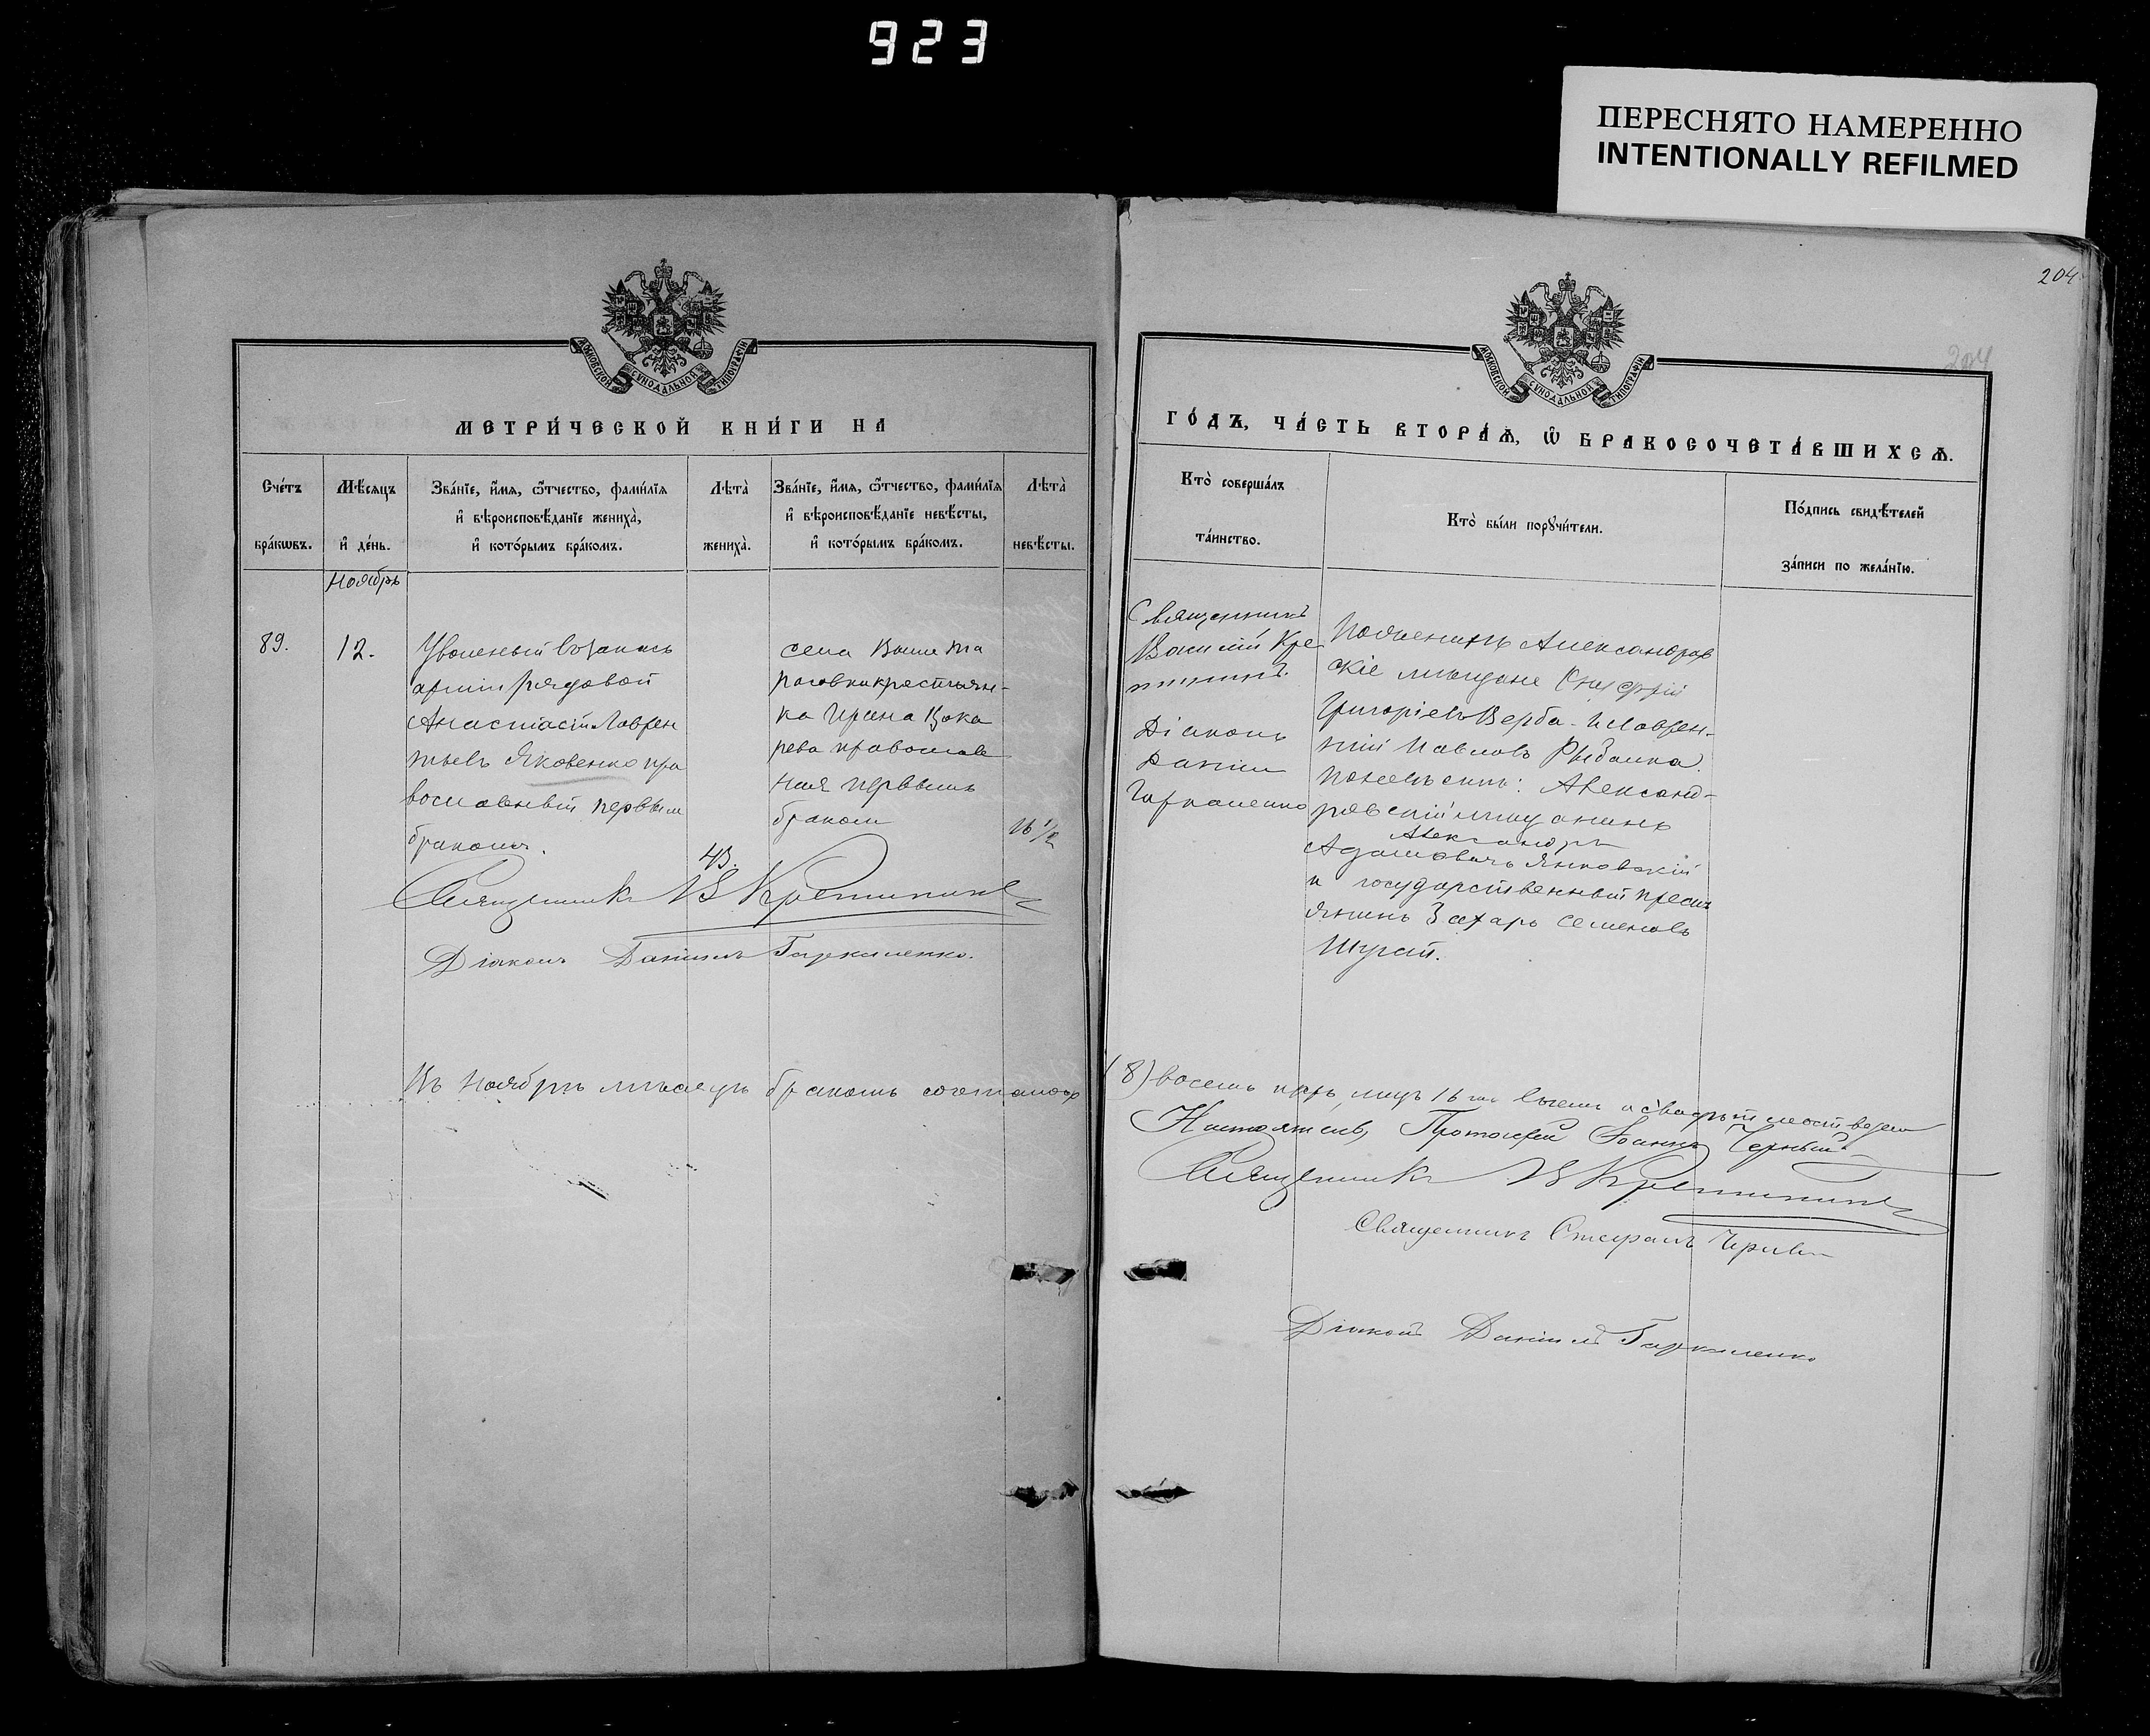 923
ПЕРЕСНЯТО НАМЕРЕННО
INTENTIONALLY REFILMED
204
204
МОСКОВСКОЙ СУНОДАЛЬНОЙ ТИПОГРАФІИ
МЕТРИ́ЧЕСКОЙ КНИ́ГИ НА
Сче́тъ бра́кѡвъ.
Мѣ́сяцъ и҆ де́нь.
Зва́нїе, и҆́мѧ, ѻ҆́тчество, фами́лїѧ
и҆ вѣроисповѣ́данїе жениха̀,
и҆ кото́рымъ бра́комъ.
Лѣта̀ жениха̀.
Зва́нїе, и҆́мѧ, ѻ҆́тчество, фами́лїѧ
и҆ вѣроисповѣ́данїе невѣ́сты,
и҆ кото́рымъ бра́комъ.
Лѣта̀ невѣ́сты.
Ноябрь
89.
12.
Уволеный въ запасъ
арміи рядовой
Анастасій Лаврен
тьевъ Яковенко пра
вославный первым
бракомъ.
43.
села
крестьян-
ка Ирина
рева православ
ная первымъ
браком
16 1/2
Священникъ В Крещановскій
Діаконъ Даніилъ Гаркаленко.
Въ Ноябрѣ мѣсяцѣ бракомъ сочеталось
МОСКОВСКОЙ СУНОДАЛЬНОЙ ТИПОГРАФІИ
ГО́ДЪ, ЧА́СТЬ ВТОРА́Ѧ, Ѡ҆ БРАКОСОЧЕТА́ВШИХСѦ.
Кто̀ соверша́лъ
та́инство.
Кто̀ бы́ли порꙋчи́тели.
По́дпись свидѣ́телей
за́писи по жела́нїю.
Священникъ
Василій
Діаконъ
Даніил
Гаркаленко
По женихѣ Александров
скіе мещане
Григоріевъ Верба и Лаврен-
тій Павловъ Рыбалка.
По невѣстѣ: Александ-
ровскій мещанинъ
Александръ
Адамовичъ Янковскій
и государственный крестья
янинъ Захаръ Семеновъ
(8) восемь паръ, лицъ 16
Настоятель, Протоіерей Іоаннъ Черный
Священникъ В
Священникъ Стефанъ
Діаконъ Даніилъ Гаркаленко